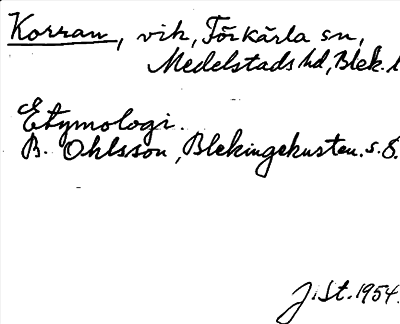 Korran, vik, Förkärla sn,
Medelstads hd, Blek. l
Etymologi.
B. Ohlsson, Blekingekusten. s. 8.
J. St. 1954.